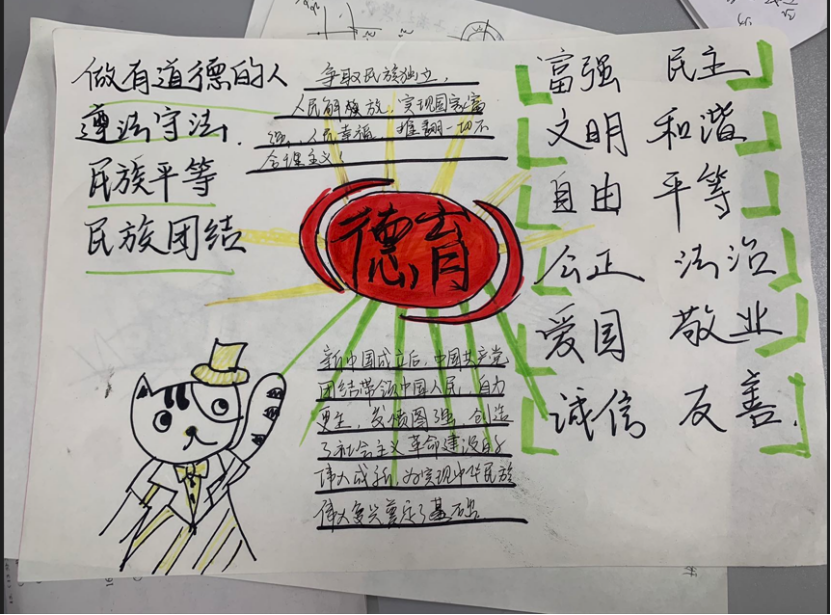 做有道德的人
遵法守法，
民族平等
民族团结
争取民族独立，
人民解放，实现国家富
强，人民幸福，推翻一切不
合理主义！
德育
新中国成立后，中国共产党
团结带领中国人民，自力
更生，发愤图强，创造
了社会主义革命建设的
伟大成就，为实现中华民族
伟大复兴奠定了基础
富强 民主
文明 和谐
自由 平等
公正 法治
爱国 敬业
诚信 友善.